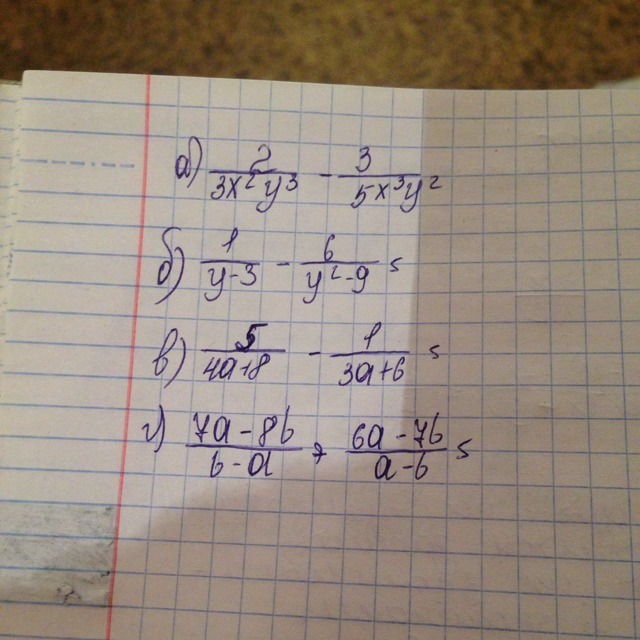 а) 2/(3x²y³) - 3/(5x³y²)
б) 1/(y-3) - 6/(y²-9) =
в) 5/(4a+8) - 1/(3a+6) =
г) (7a-8b)/(b-a) + (6a-7b)/(a-b) =